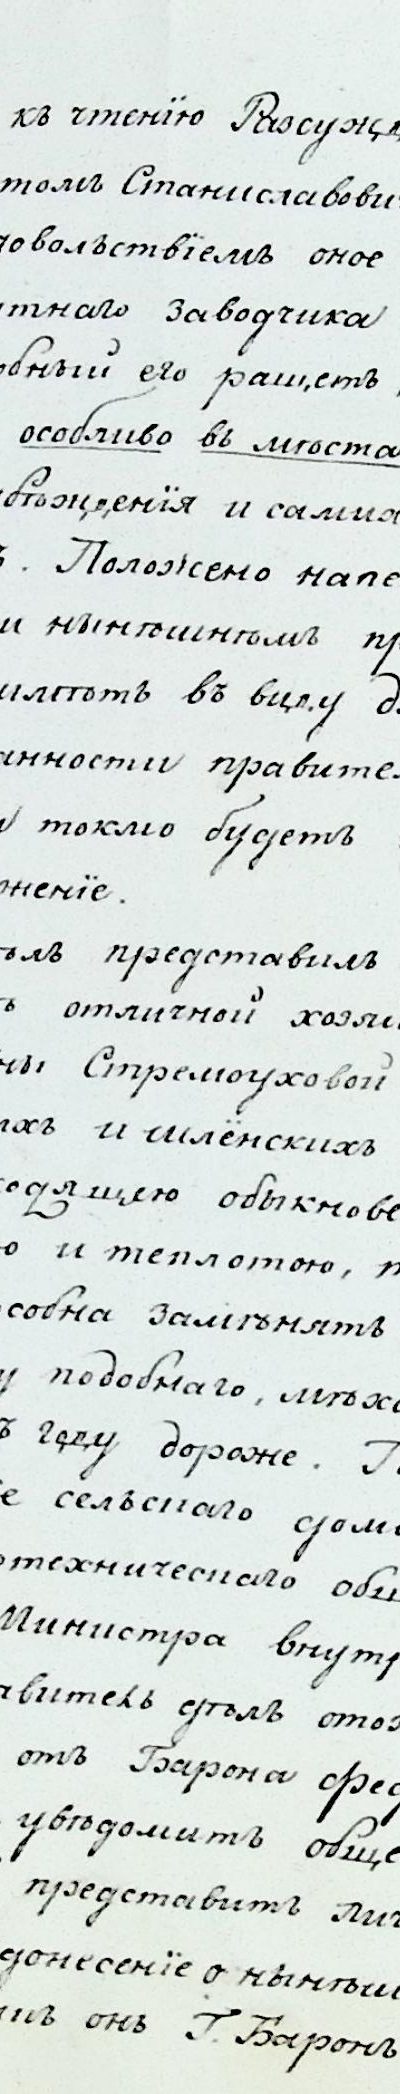 къ чтенїю Разсужд
томъ Станиславови
довольствїемъ оное
тнаго заводчика
обный его ращетъ,
особливо въ мѣста
бѣжденїя и самих
ъ. Положено напе
и нынѣшнѣмъ пр
имѣтъ въ виду д
анности правител
токмо будетъ
онение.
ѣлъ представилъ
ъ отличной хозяи
ны Стремоуховой
ихъ и шлёнскихъ
ходящею обыкнове
ю и теплотою, п
особна замѣнять
у подобнаго, мѣхо
ъ году дороже. Г
е сельскаго домо
отехническаго общ
Министра внутр
авитель дѣлъ отоз
отъ Барона Фед
увѣдомить обще
представить лич
донесенїе о нынѣш
онъ Г. Баронъ